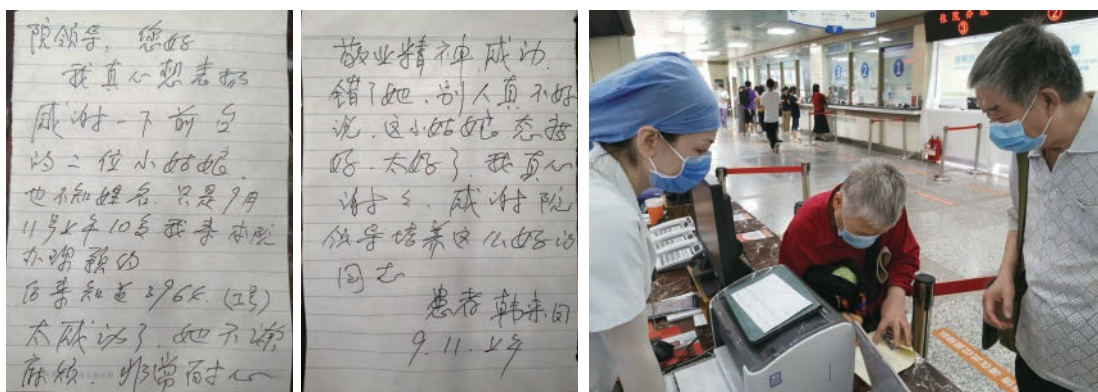 院领导，您好
我真心想表扬
感谢一下前台
的二位小姑娘
也不知姓名．只是9月
11号上午10点我来本院
办理预约
后来知道3964.(工号)
太感动了．她不嫌
麻烦．非常耐心
敬业精神感动．
错了她、别人真不好
说．这小姑娘．态度
好．太好了．我真心
谢谢．感谢院
领导培养这么好的
同志
患者 韩来
9.11.上午
住院办
③
②
3 2 1